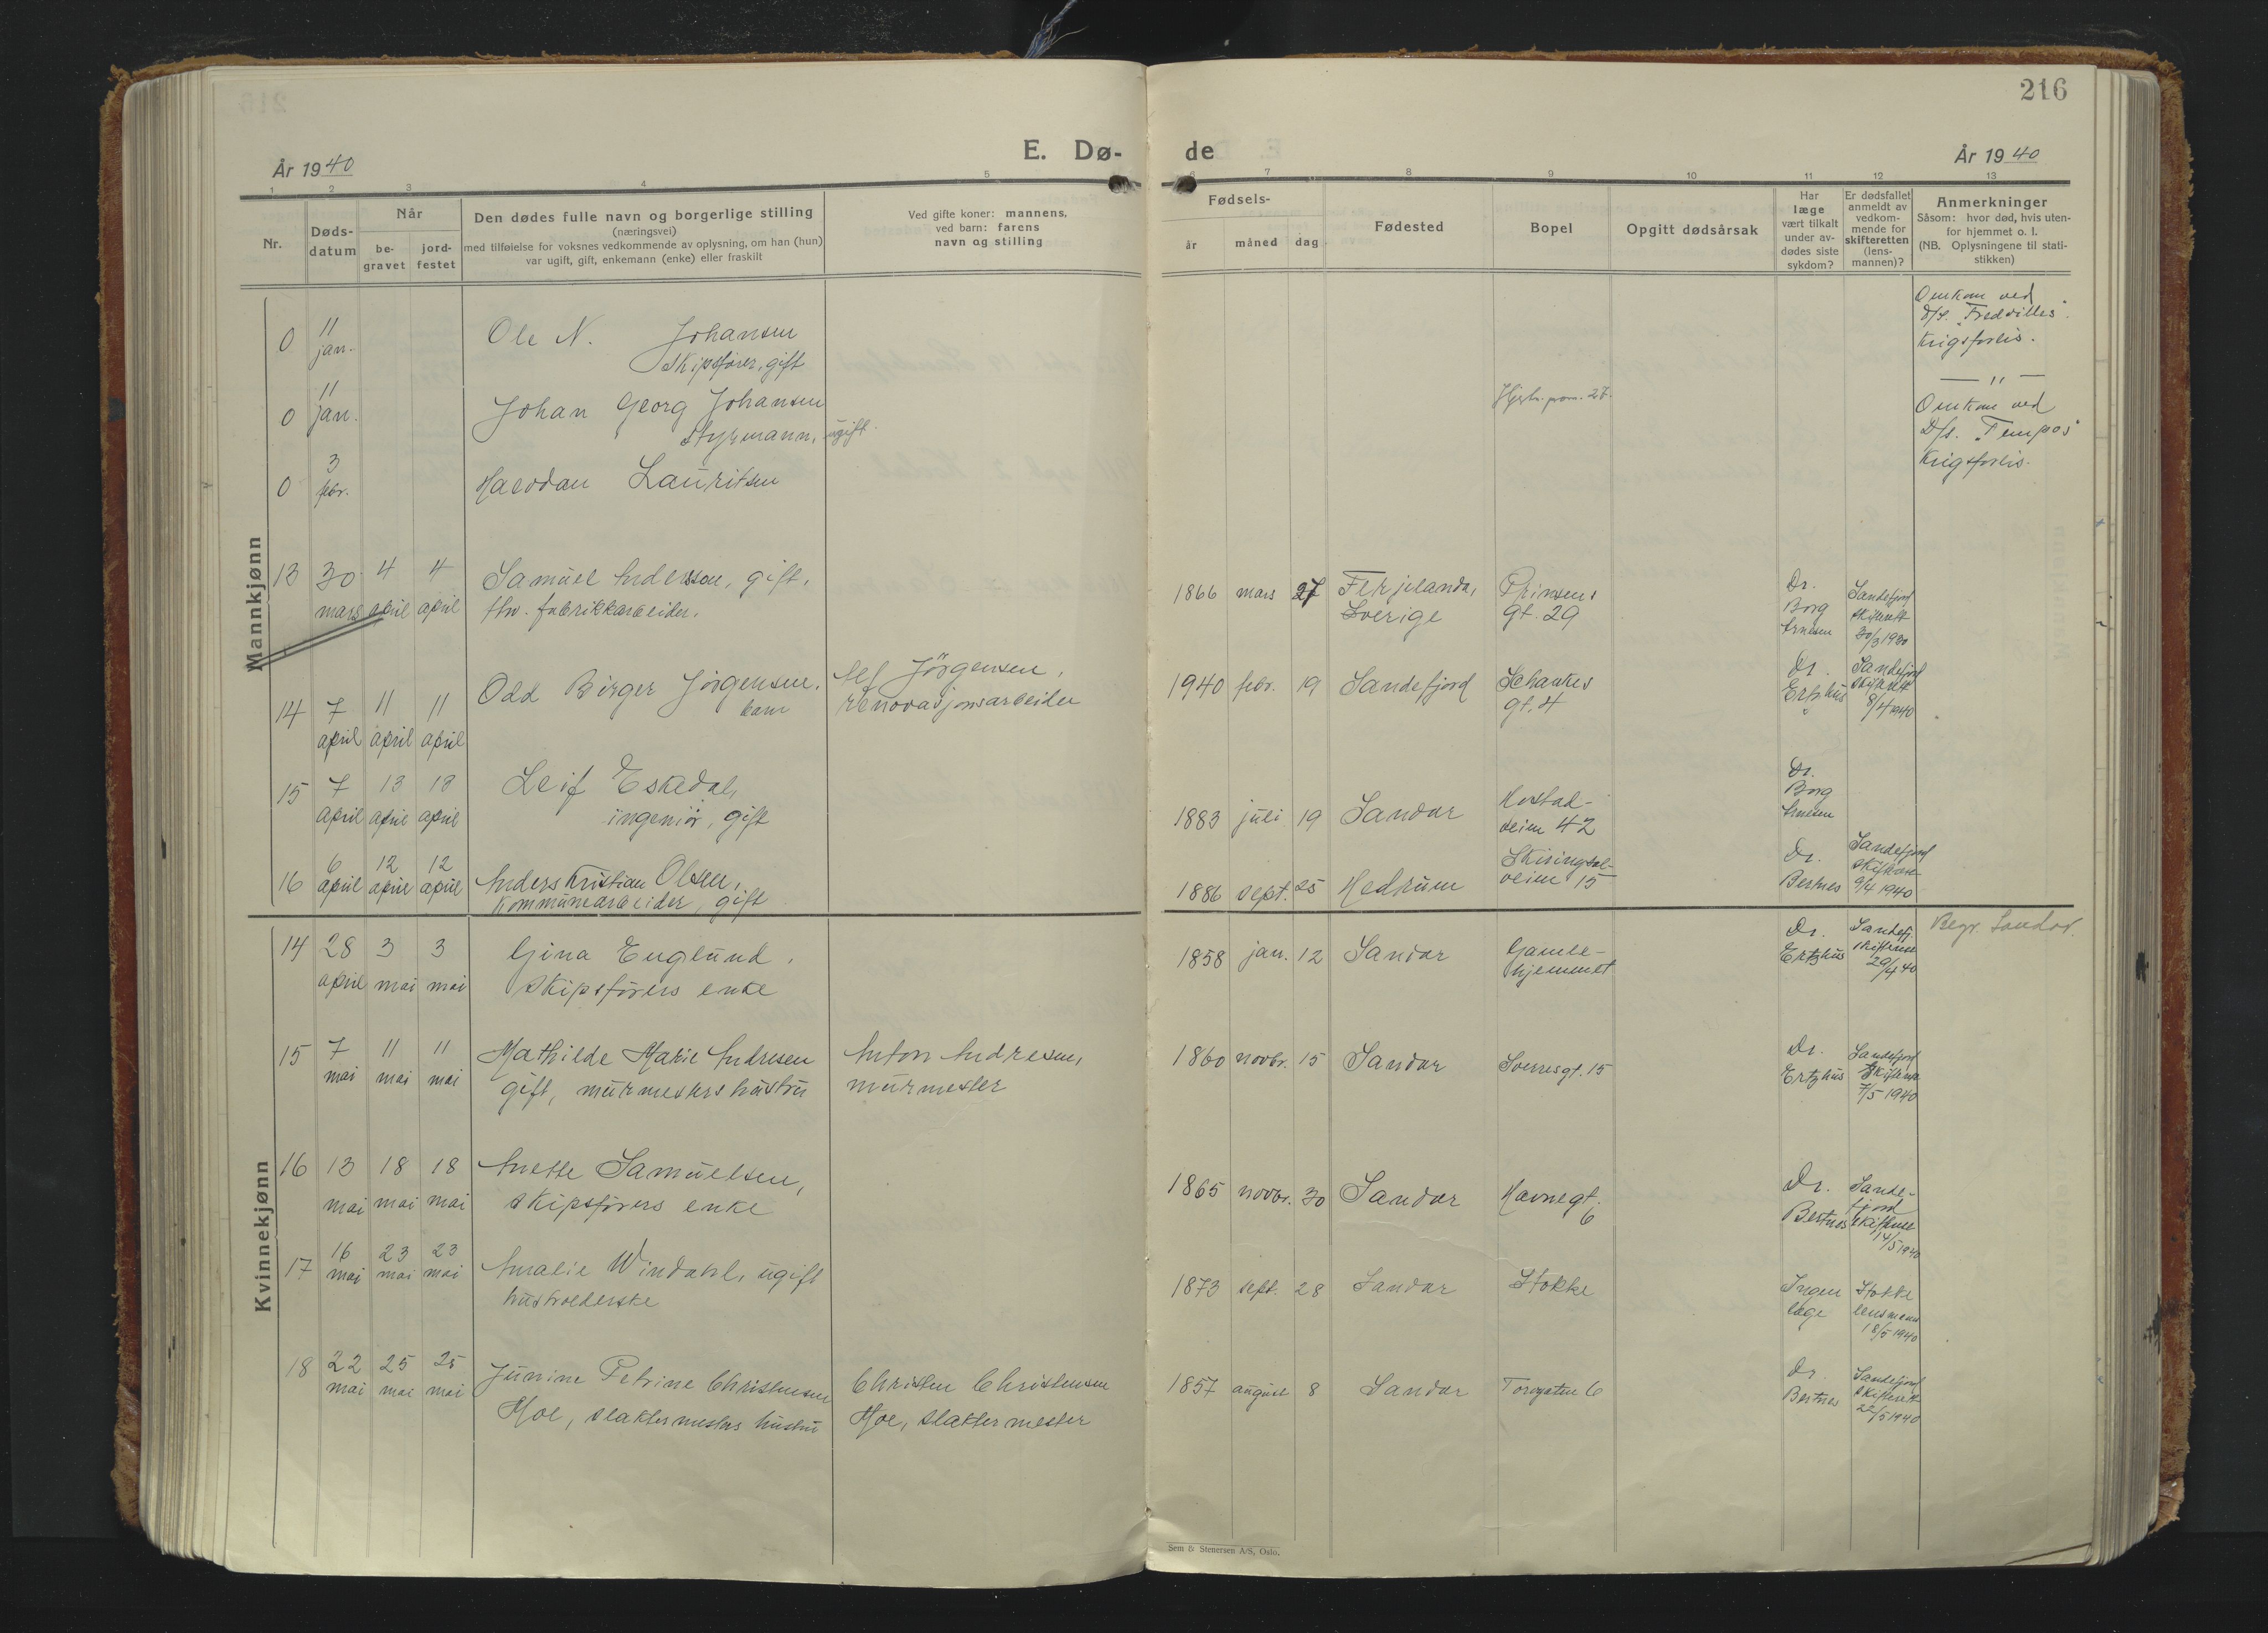 216
E. Dø-
de
År 1940
År 1940
1 2 3 4 5
6 7 8 9 10 11 12 13
Nr.
Døds-
datum
Når
be-
gravet
jord-
festet
Den dødes fulle navn og borgerlige stilling
(næringsvei)
med tilføielse for voksnes vedkommende av oplysning, om han (hun)
var ugift, gift, enkemann (enke) eller fraskilt
Ved gifte koner: mannens,
ved barn: farens
navn og stilling
Fødsels-
år måned dag
Fødested
Bopel
Opgitt dødsårsak
Har
læge
vært tilkalt
under av-
dødes siste
sykdom?
Er dødsfallet
anmeldt av
vedkom-
mende for
skifteretten
(lens-
mannen)?
Anmerkninger
Såsom: hvor død, hvis uten-
for hjemmet o. l.
(NB. Oplysningene til stati-
stikken)
Mannkjønn
0 11 Ole N. Johansen Omkom ved
jan. Skipsfører, gift D/S. "Fredvilles".
Krigsforlis.
— " —
0 11 Johan Georg Johansen Omkom ved
jan. Styrmann, ugift. D/s. "Tempos"
Krigsforlis.
0 3 Halvdan Lauritsen
febr.
13 30 4 4 Samuel Anderson, gift, 1866 mars 27 Ferjelanda, Prinsens Dr. Sandefjord
mars april april fhv. fabrikkarbeider. Sverige gt. 29 Borg skifterett
Arnesen 30/3 1940
14 7 11 11 Odd Birger Jørgensen, Alf Jörgensen, 1940 febr. 19 Sandefjord Schankes Dr. Sandefjord
april april april barn renovasjonsarbeider gt. 4 Ertzhus skifterett
8/4 1940
15 7 13 13 Leif Eskedal, 1883 juli 19 Sandar veien 42 Dr.
april april april ingeniør, gift Borg
Arnesen
16 6 12 12 Anders Kristian Olsen, 1886 sept. 25 Hedrum Skiringsal- Dr. Sandefjord
april april april kommunearbeider, gift veien 15 Bertnes skifterett
9/4 1940
Kvinnekjønn
14 28 3 3 Gina Englund, 1858 jan. 12 Sandar Gamle- Dr. Sandefj. Begr. Sandar.
april mai mai skipsförers enke hjemmet Ertzhus skifterett
29/4 40
15 7 11 11 Mathilde Marie Andresen Anton Andresen, 1860 novbr. 15 Sandar Sverresgt. 15 Dr. Sandefjord
mai mai mai gift, murmesters hustru murmester Ertzhus skifterett
7/5 1940
16 13 18 18 Anette Samuelsen, 1865 novbr. 30 Sandar Havnegt. Dr. Sande-
mai mai mai skipsförers enke 6 Bertnes fjord
skifterett
14/5 1940
17 16 23 23 Amalie Windahl, ugift 1873 sept. 28 Sandar Stokke Ingen Stokke
mai mai mai husholderske læge lensmann
18/5 1940
18 22 25 25 Junine Petrine Christensen Christen Christensen 1857 august 8 Sandar Torvgaten 6 Dr. Sandefjord
mai mai mai Moe, slaktermesters hustru Moe, slaktermester Bertnes skifterett
22/5 1940
Sem & Stenersen A/S, Oslo.